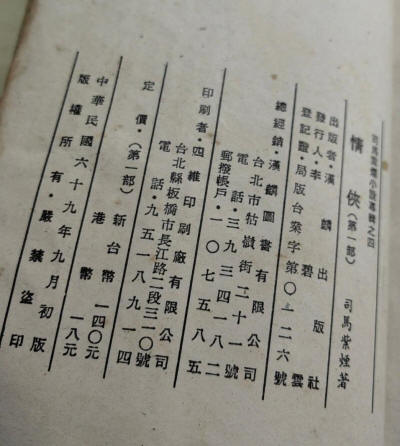 司馬紫煙小說專輯之四
情俠(第一部) 司馬紫煙著
出版者·漢麟出版社
發行人·李碧雲
登記證·局版台業字第〇一二六號
總經銷·漢麟圖書有限公司
台北市牯嶺街二十一號
電話·三九三四一八二
郵撥帳戶·一〇七五八五
印刷者·四維印刷廠有限公司
台北縣板橋市長江路二段三二〇號
電話·九五一八九一四
定價·(第一部)新台幣一四〇元
港幣一八元
中華民國六十九年九月初版
版權所有·嚴禁盜印